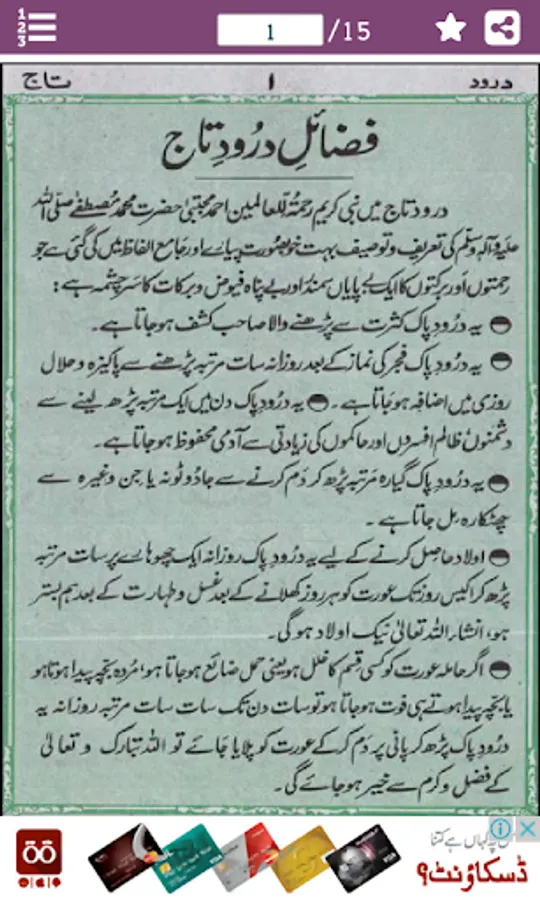 1
2
3
1 /15
درود ا تاج
فضائلِ درُودِ تاج
درود تاج میں نبی کریم رحمۃ للعالمین احمد مجتبیٰ حضرت محمد مصطفےٰ صلی اللہ
علیہ وآلہ وسلم کی تعریف و توصیف بہت خوبصورت پیارے اور جامع الفاظ میں کی گئی ہے جو
رحمتوں اور برکتوں کا ایک بے پایاں سمندر اور بے پناہ فیوض و برکات کا سرچشمہ ہے :
یہ درُودِ پاک کثرت سے پڑھنے والا صاحب کشف ہو جاتا ہے۔
یہ درُودِ پاک فجر کی نماز کے بعد روزانہ سات مرتبہ پڑھنے سے پاکیزہ و حلال
روزی میں اضافہ ہو جاتا ہے۔ یہ درُودِ پاک دن میں ایک مرتبہ پڑھ لینے سے
دشمنوں ظالم افسروں اور حاکموں کی زیادتی سے آدمی محفوظ ہو جاتا ہے۔
یہ درُودِ پاک گیارہ مرتبہ پڑھ کر دَم کرنے سے جادُو ٹونہ یا جن وغیرہ سے
چھٹکارہ مل جاتا ہے۔
اولاد حاصل کرنے کے لیے یہ درُودِ پاک روزانہ ایک چھوہارے پر سات مرتبہ
پڑھ کر اکیس روز تک عورت کو ہر روز کھلانے کے بعد غسل و طہارت کے بعد ہم بستر
ہو، انشاء اللہ تعالیٰ نیک اولاد ہو گی۔
اگر حاملہ عورت کو کسی قسم کا خلل ہو یعنی حمل ضائع ہو جاتا ہو، مُردہ بچہ پیدا ہوتا ہو
یا بچہ پیدا ہوتے ہی فوت ہو جاتا ہو تو سات دن تک سات سات مرتبہ روزانہ یہ
درُودِ پاک پڑھ کر پانی پر دَم کر کے عورت کو پلایا جائے تو اللہ تبارک و تعالیٰ
کے فضل و کرم سے خیر ہو جائے گی۔
کہاں ہے کتنا
ڈسکاؤنٹ؟
VISA